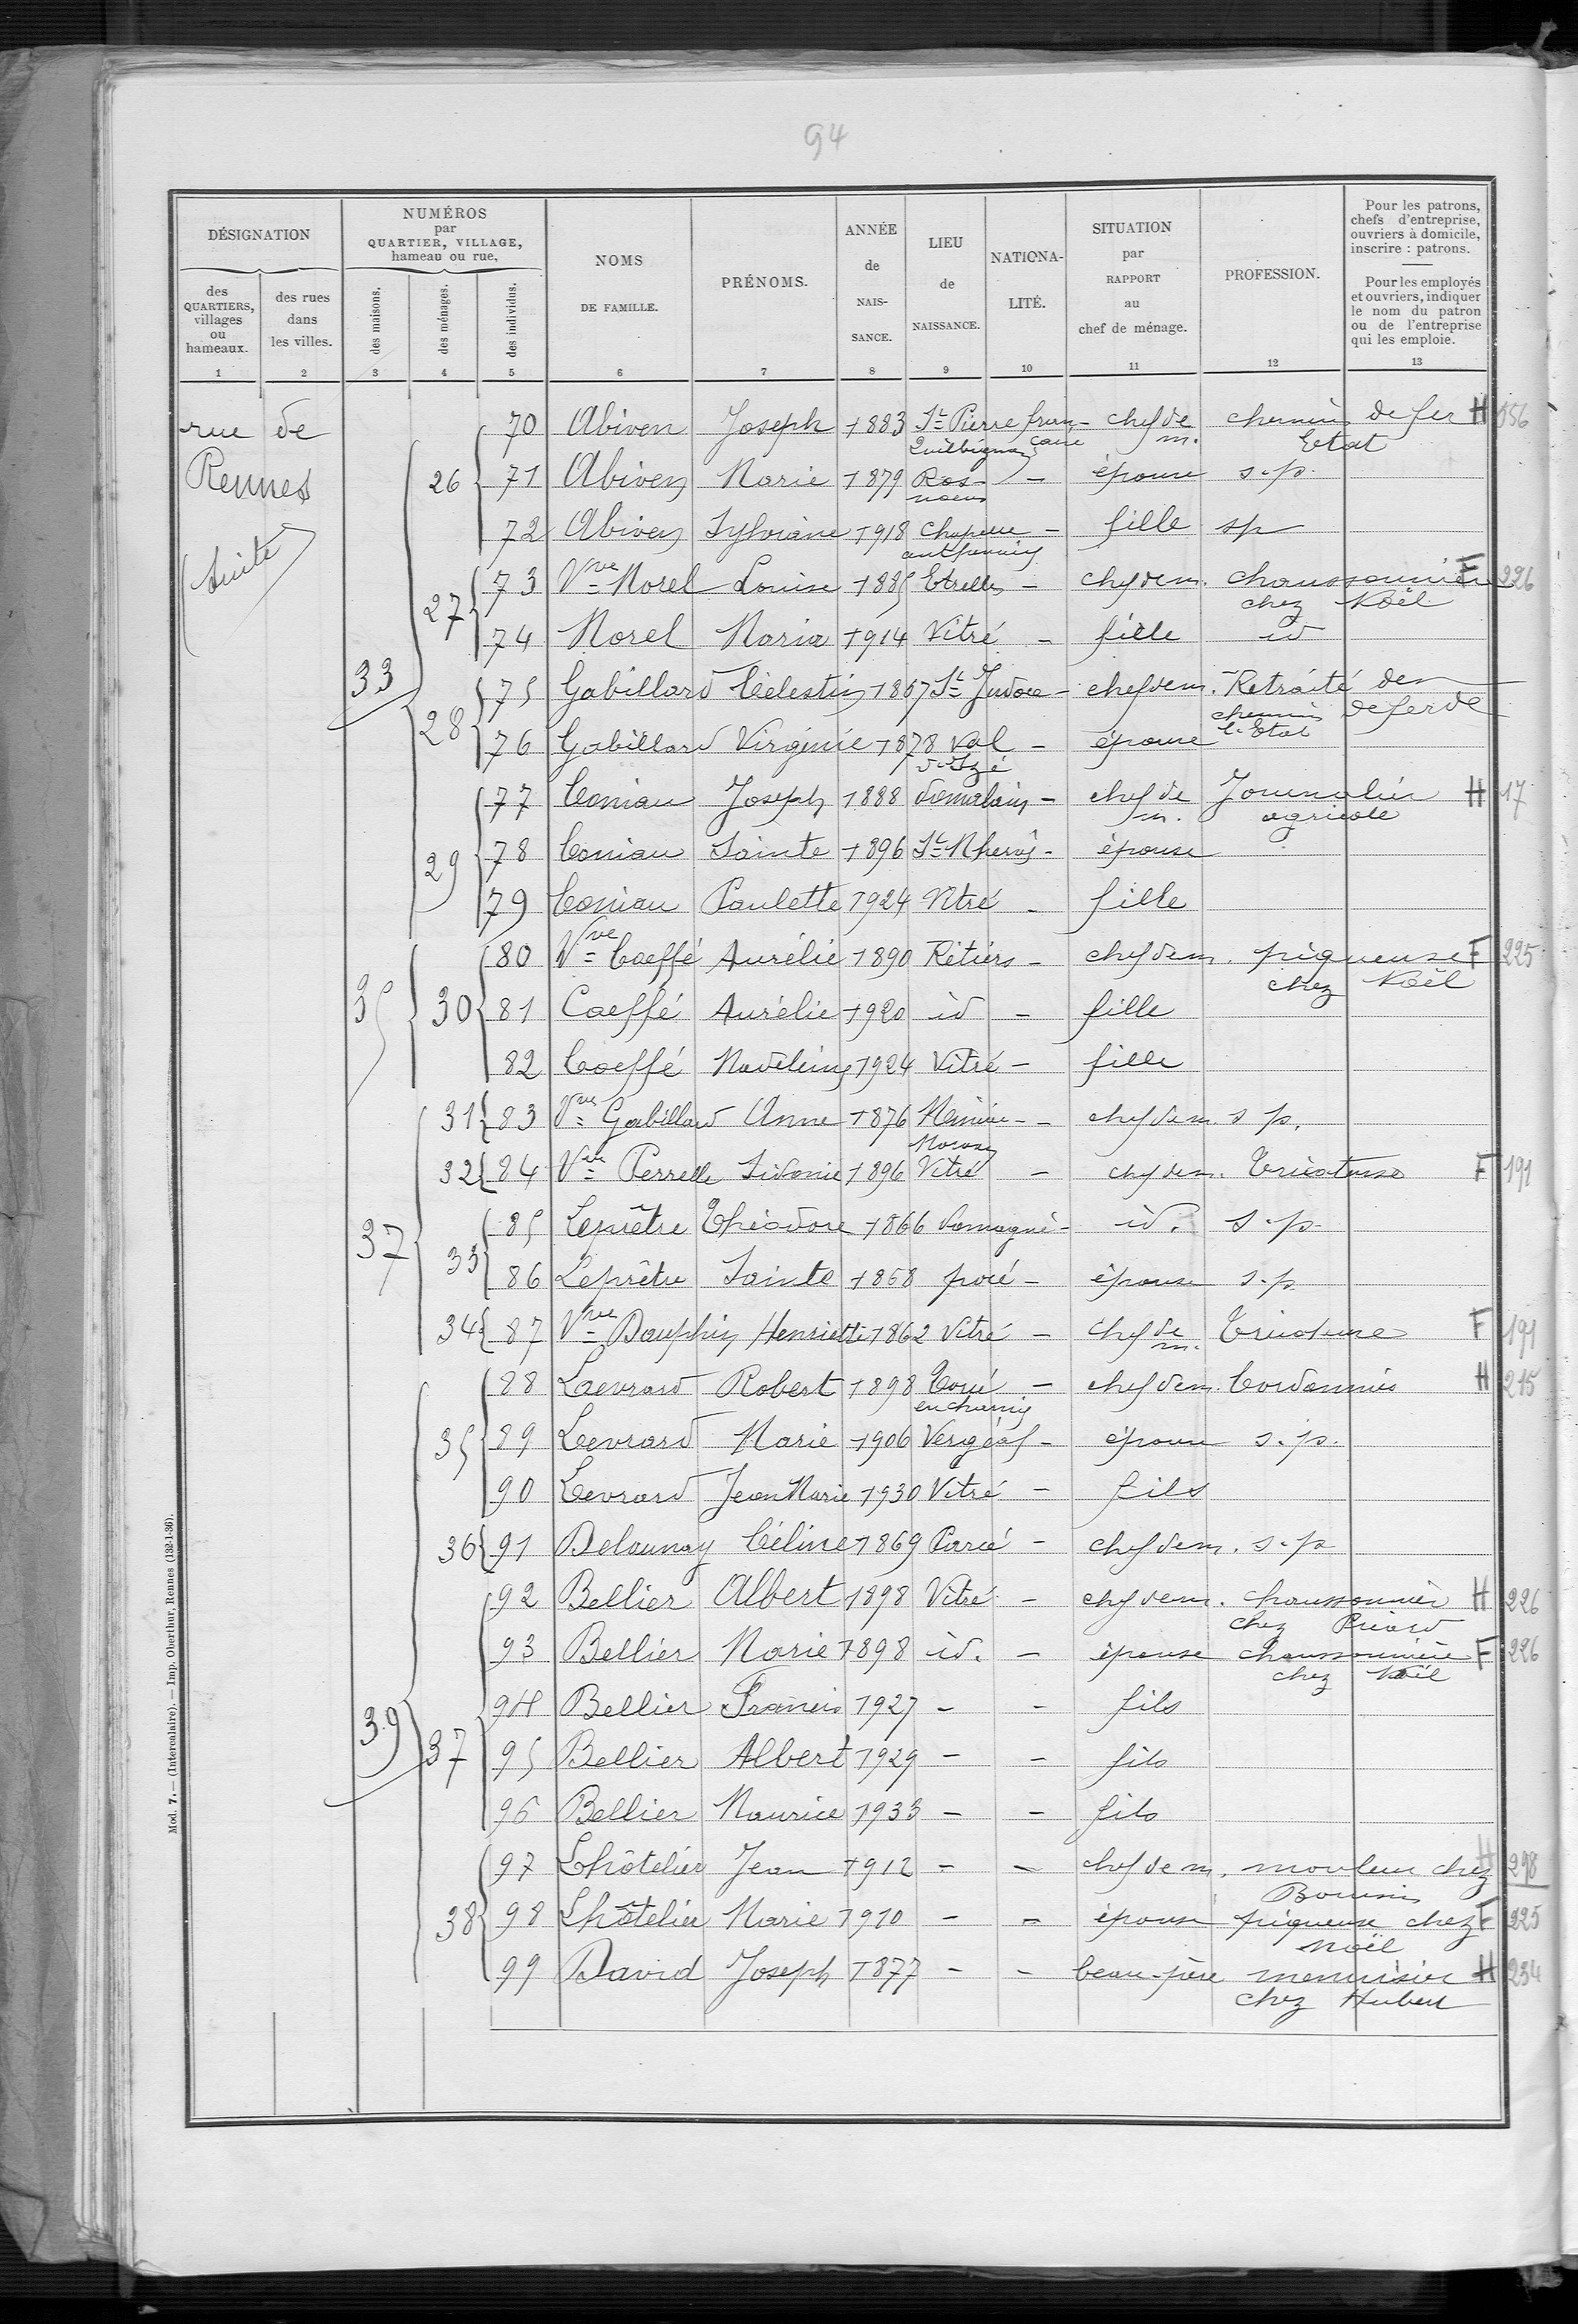 94
DÉSIGNATION
NUMÉROS par QUARTIER, VILLAGE, hameau ou rue,
NOMS DE FAMILLE.
PRÉNOMS.
ANNÉE de NAIS- SANCE.
LIEU de NAISSANCE.
NATIONA- LITÉ.
SITUATION par RAPPORT au chef de ménage.
PROFESSION.
Pour les patrons, chefs d'entreprise, ouvriers à domicile, inscrire : patrons.
Pour les employés et ouvriers, indiquer le nom du patron ou de l'entreprise qui les emploie.
des QUARTIERS, villages ou hameaux.
des rues dans les villes.
des maisons.
des ménages.
des individus.
1 2 3 4 5 6 7 8 9 10 11 12 13
rue de Rennes (suite)
70 Abiven Joseph 1883 St Pierre Quilbignon française chef de m. chemin de fer Etat H 856
26 71 Abiven Marie 1879 Rosnoen - épouse s.p.
72 Abiven Sylviane 1918 Chapelle - fille sp
27 73 Vve Morel Louise 1885 Etrelles - chef de m. chaussonnière chez Noël F 226
74 Morel Maria 1914 Vitré - fille id
33
28 75 Gabillard Célestin 1867 St Judoce - chef de m. Retraité des chemins de fer de l'Etat
76 Gabillard Virginie 1878 Val d'Izé - épouse
77 Coniau Joseph 1888 Domalain - chef de m. Journalier agricole H 17
29 78 Coniau Sainte 1896 St Mhervé - épouse
79 Coniau Paulette 1924 Vitré - fille
80 Vve Coeffé Aurélie 1890 Rétiers - chef de m. piqueuse chez Noël F 225
35 30 81 Coeffé Aurélie 1920 id - fille
82 Coeffé Madeleine 1924 Vitré - fille
31 83 Vve Gabillard Anne 1876 - chef de m s p.
32 84 Vve Perrelle Sidonie 1896 Vitré - chef de m. Tricoteuse F 191
37
33 85 Leprêtre Théodore 1866 Domagné - id. s.p.
86 Leprêtre Sainte 1868 - épouse s.p.
34 87 Vve Dauphin Henriette 1862 Vitré - chef de m. Tricoteuse F 191
88 Levrard Robert 1898 Torcé en charnie - chef de m. Cordonnier H 215
35 89 Levrard Marie 1906 Vergéal - épouse s.p.
90 Levrard Jean Marie 1930 Vitré - fils
36 91 Delaunay Céline 1869 Parcé - chef de m. s.p
92 Bellier Albert 1898 Vitré - chef de m. chaussonnier chez H 226
93 Bellier Marie 1898 id. - épouse chaussonnière chez Noël F 226
94 Bellier Francis 1927 - - fils
39 37 95 Bellier Albert 1929 - - fils
96 Bellier Maurice 1933 - - fils
97 Lhôtelier Jean 1912 - - chef de m. mouleur chez H 298
38 98 Lhôtelier Marie 1910 - - épouse piqueuse chez Noël F 225
99 David Joseph 1877 - - beau-père menuisier chez Hubert H 234
Mod. 7. — (Intercalaire). — Imp. Oberthur, Rennes (132-1-36).